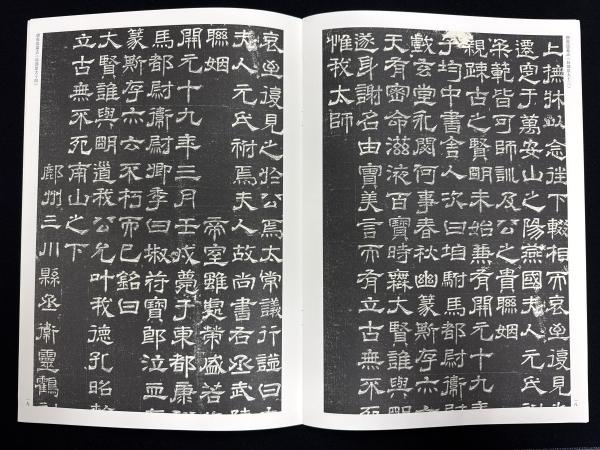 上撫牀以念往下輟相而哀至復見
遷窆于萬安山之陽燕國夫人元氏祔
柔範皆可師訓及公之貴聯姻
親疎古之賢明未始兼有開元十九年
子均中書舍人次曰垍駙馬都尉衛尉
戲玄堂永閟何事春秋幽篆斯存亦
天有密命滋液百寶時無大賢誰與明
遂身謝名由寶美言而有立古無不死
惟我太師
哀至復見之於公焉太常議行謚曰
夫人元氏祔焉夫人故尚書右丞武陵
聯姻 帝室雖處榮盛若
開元十九年三月壬戌薨于東都康
馬都尉衛尉卿季曰埱符寶郎泣血
篆斯存亦云不朽而已銘曰
大賢誰與明遺我公允叶我德孔昭
立古無不死南山之下
鄜州三川縣丞衛靈鶴